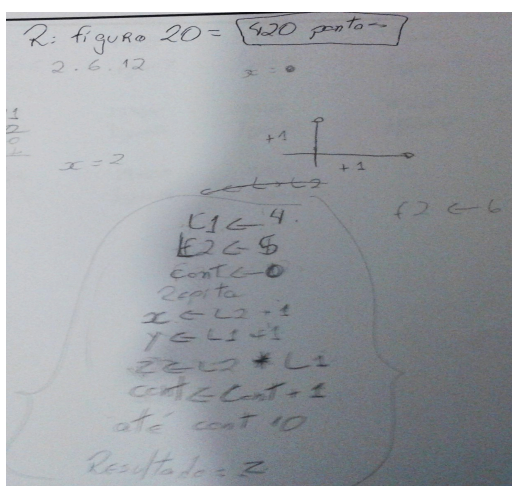 R: figura 20 = 420 ponto
2.6.12
x = 0
1
2
0
+1
x = 2
+1
L1 ← 4.
L2 ← 5
f2 ← 6
Cont ← 0
Repita
x ← L2 + 1
y ← L1 + 1
Z ← L2 * L1
cont ← Cont + 1
até cont 10
Resultado = Z